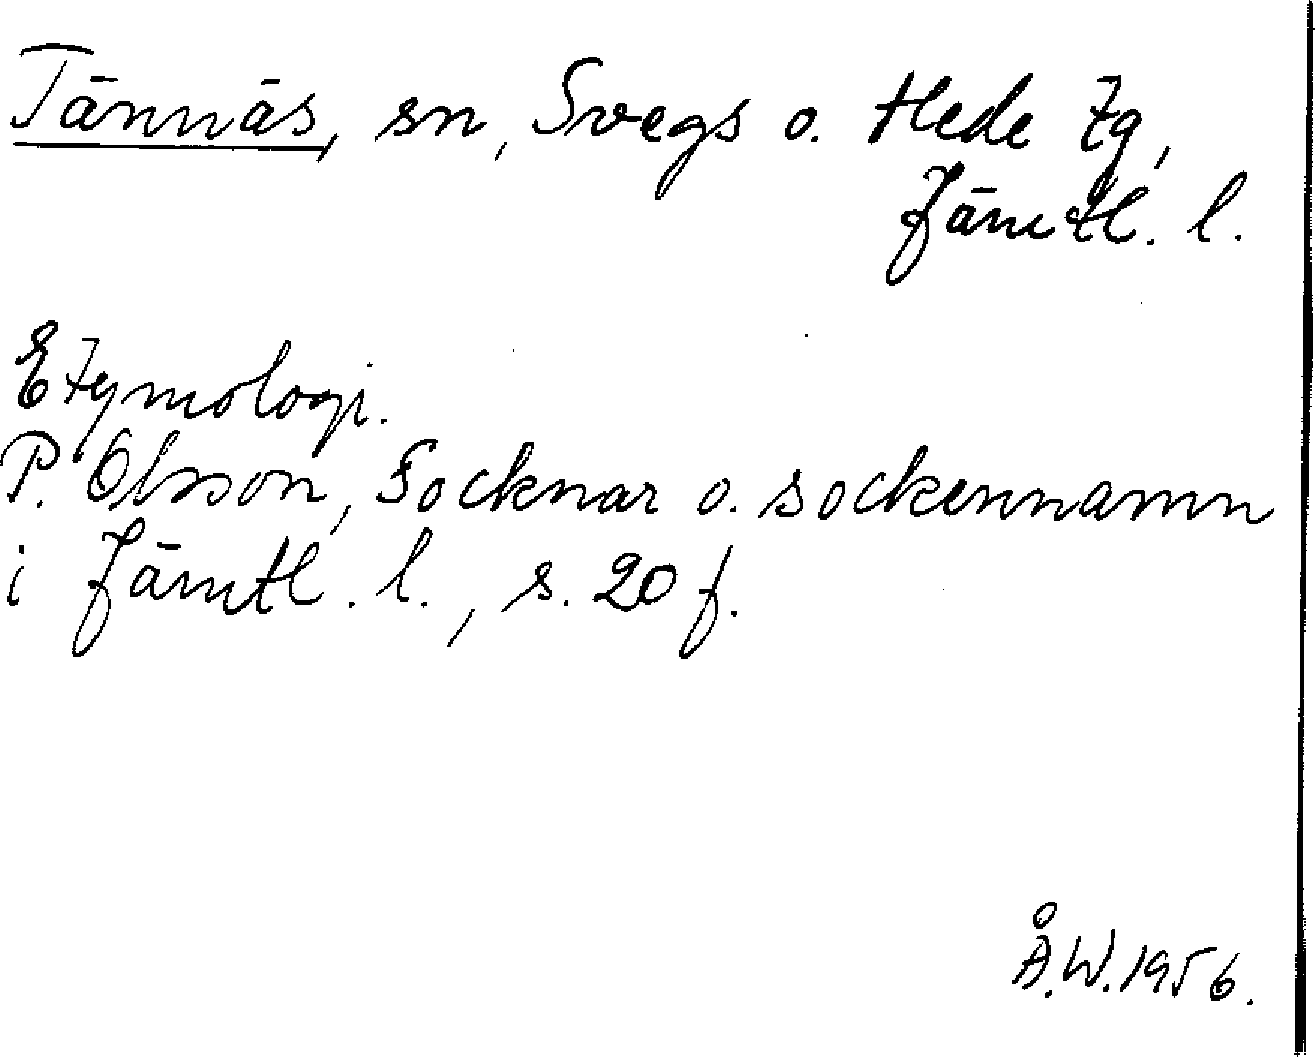 Tännäs, sn, Svegs o. Hede tg,
Jämtl. l.
Etymologi.
P. Olsson, Socknar o. sockennamn
i Jämtl. l., s. 20 f.
Å.W. 1956.